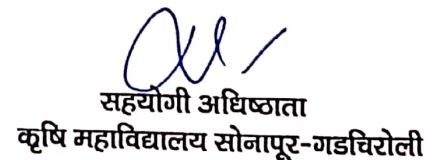 सहयोगी अधिष्ठाता
कृषि महाविद्यालय सोनापूर-गडचिरोली